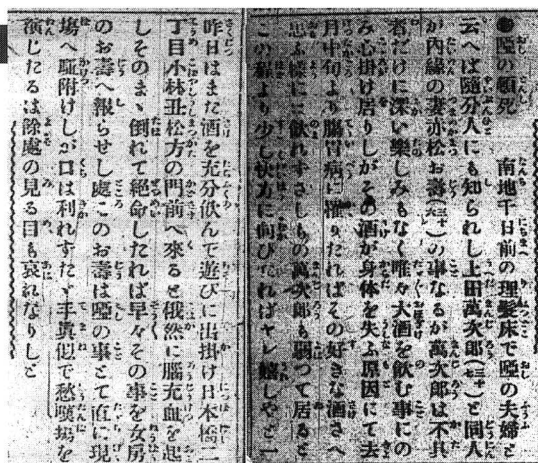 ●唖の頓死 南地千日前の理髮床で唖の夫婦と
云へば隨分人にも知られし上田萬次郎と同人
が內縁の妻赤松お壽の事なるが萬次郎は不具
者だけに深い樂しみもなく唯々大酒を飮む事にの
み心掛け居りしがその酒が身体を失ふ原因にて去
月中旬より膓胃病に罹りたればその好きな酒さへ
思ふ樣に飮れずさしもの萬次郎も弱つて居ると
この程より少し快方に向ひたればヤレ嬉しやと一
昨日はまた酒を充分飮んで遊びに出掛け日本橋二
丁目小林丑松方の門前へ來ると俄然に腦充血を起
しそのまゝ倒れて絶命したれば早々その事を女房
のお壽へ報らせし處このお壽は唖の事とて直に現
塲へ駈附けしが口は利れずたゞ手眞似で愁嘆塲を
演じたるは餘處の見る目も哀れなりしと